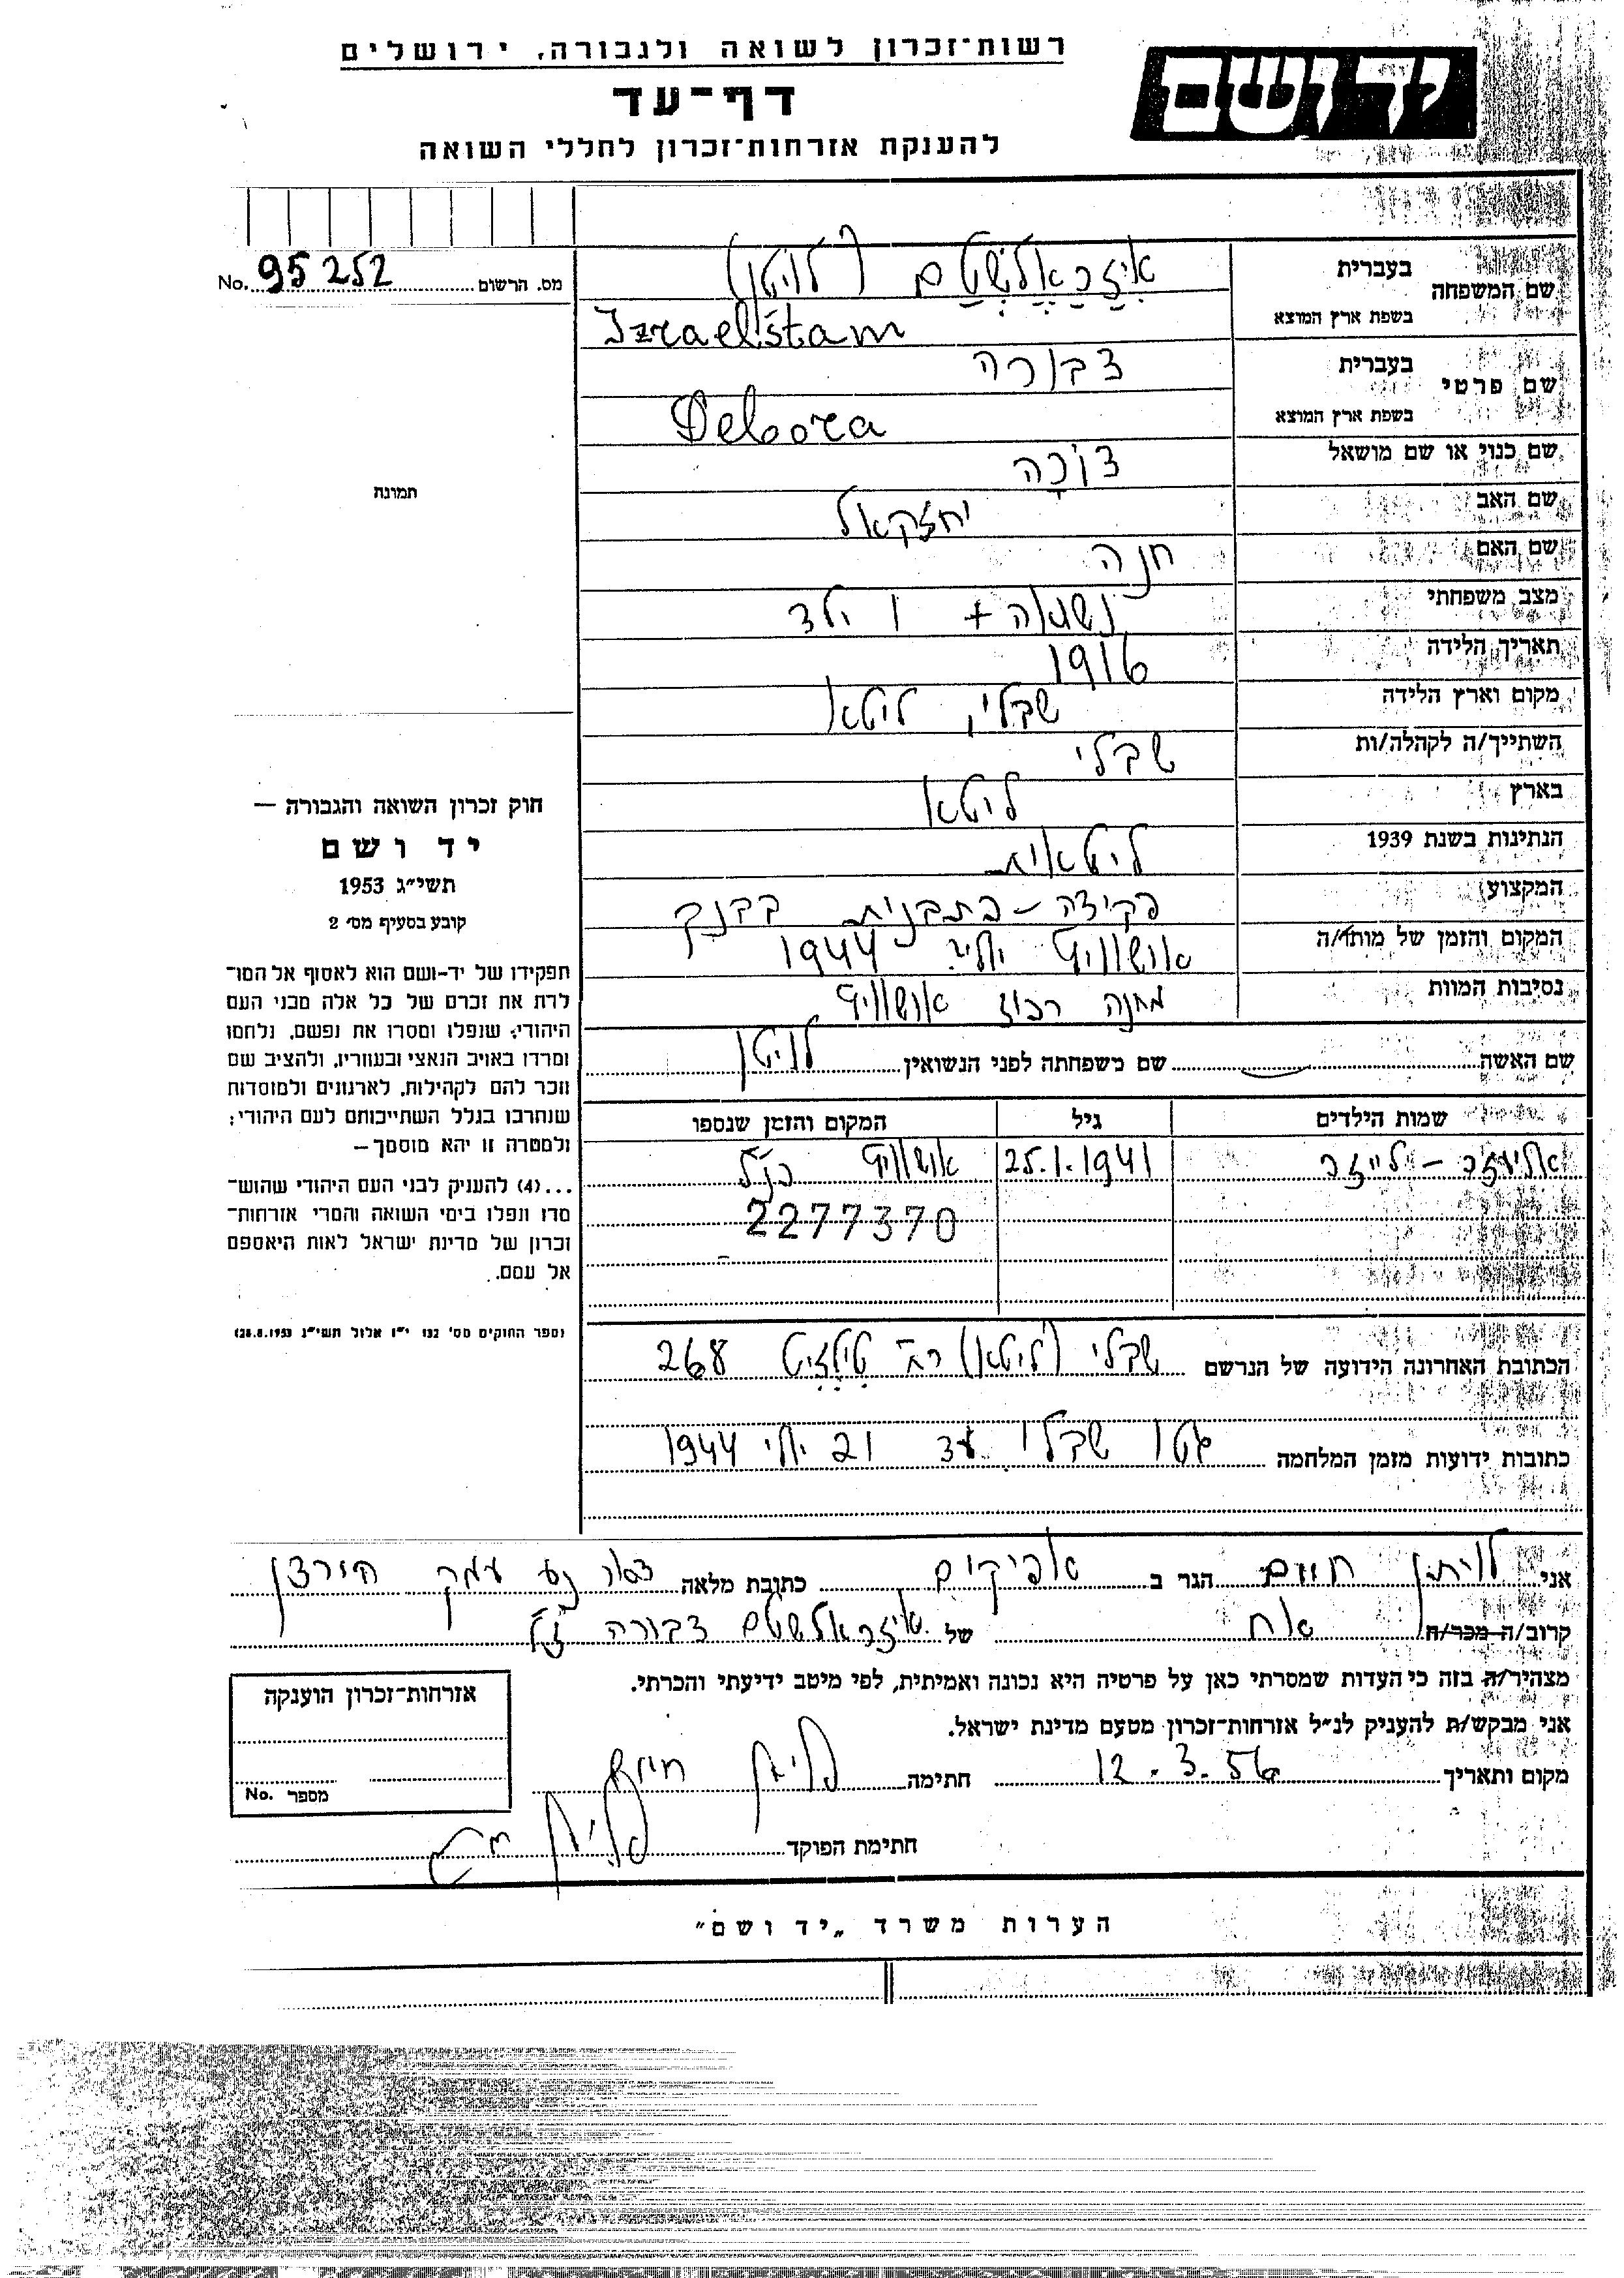 רשות־זכרון לשואה ולגבורה, ירושלים
יד ושם
דף־עד
להענקת אזרחות־זכרון לחללי השואה
מס. הרשום No. 95252
שם המשפחה בעברית אִיזְרַאֶלְשְׁטַם (לויטן)
בשפת ארץ המוצא Izraelštam
שם פרטי בעברית דבורה
בשפת ארץ המוצא Debora
שם כנוי או שם מושאל
שם האב יחזקאל
שם האם חנה
מצב משפחתי נשואה + 1 ילד
תאריך הלידה 1916
מקום וארץ הלידה שבלי, ליטא
השתייך/ה לקהלה/ות שבלי
בארץ ליטא
הנתינות בשנת 1939 ליטאית
המקצוע פקידה – כתבנית בבנק
המקום והזמן של מותו/ה אושוויץ יולי 1944
נסיבות המוות מחנה רכוז אושוויץ
שם האשה שם משפחתה לפני הנשואין לויטן
שמות הילדים גיל המקום והזמן שנספו
אליעזר – לייזר 25.1.1941 אושוויץ כנ"ל
2277370
הכתובת האחרונה הידועה של הנרשם שבלי (ליטא) רח' טילזיט 268
כתובות ידועות מזמן המלחמה גטו שבלי עד 21 יולי 1944
תמונה
חוק זכרון השואה והגבורה —
יד ושם
תשי"ג 1953
קובע בסעיף מס' 2
תפקידו של יד־ושם הוא לאסוף אל המו־
לדת את זכרם של כל אלה מבני העם
היהודי, שנפלו ומסרו את נפשם, נלחמו
ומרדו באויב הנאצי ובעוזריו, ולהציב שם
וזכר להם לקהילות, לארגונים ולמוסדות
שנחרבו בגלל השתייכותם לעם היהודי;
ולמטרה זו יהא מוסמך—
...(4) להעניק לבני העם היהודי שהוש־
מדו ונפלו בימי השואה והמרי אזרחות־
זכרון של מדינת ישראל לאות היאספם
אל עמם.
(ספר החוקים מס' 132 י"ז אלול תשי"ג 28.8.1953)
אני לויתן חיים הגר ב אפיקים כתובת מלאה דאר נע עמק הירדן
קרוב/ה מכר/ה אח של איזראלשטם דבורה ז"ל
מצהיר/ה בזה כי העדות שמסרתי כאן על פרטיה היא נכונה ואמיתית, לפי מיטב ידיעתי והכרתי.
אני מבקש/ת להעניק לנ"ל אזרחות־זכרון מטעם מדינת ישראל.
מקום ותאריך 12.3.56 חתימה לויתן חיים
חתימת הפוקד
אזרחות־זכרון הוענקה
מספר No.
הערות משרד „יד ושם"